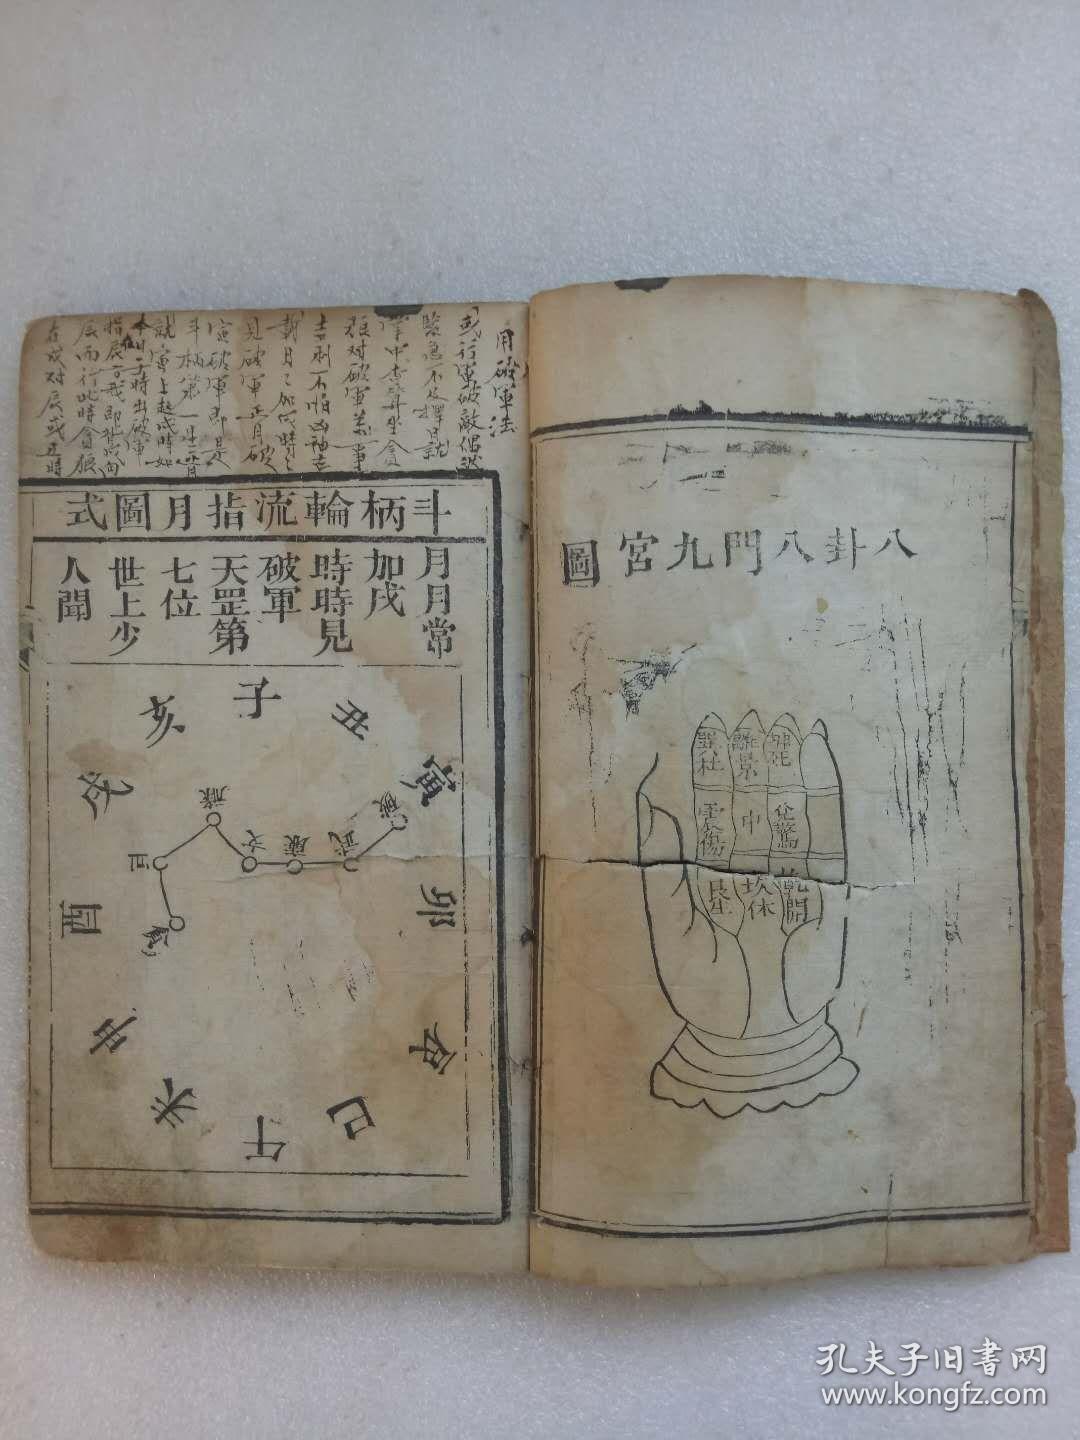 八卦八門九宮圖
巽杜
離景
坤死
震傷
中
兌驚
艮生
坎休
乾開
用破軍法
或行軍破敵偶遇
緊急不及擇日就
掌中查算坐貪
狼对破軍萬事
吉利不怕凶神
載月月加戌時時
見破軍正月破
寅破軍即是
斗柄第一星正月
就寅上起戌時如
子時出破軍
指辰
辰而行此時貪狼
在戌对辰或丑時
斗柄輪流指月圖式
月月常
加戌
時時見
破軍
天罡第
七位
世上少
人聞
子
丑
寅
卯
辰
巳
午
未
申
酉
戌
亥
破
武
廉
文
祿
巨
貪
孔夫子旧書网
www.kongfz.com